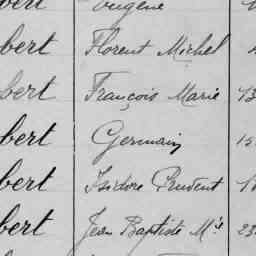 Eugène
bert Florent Michel
bert François Marie 13
bert Germain 15
bert Isidore Prudent 1
bert Jean Baptiste M^ie 23